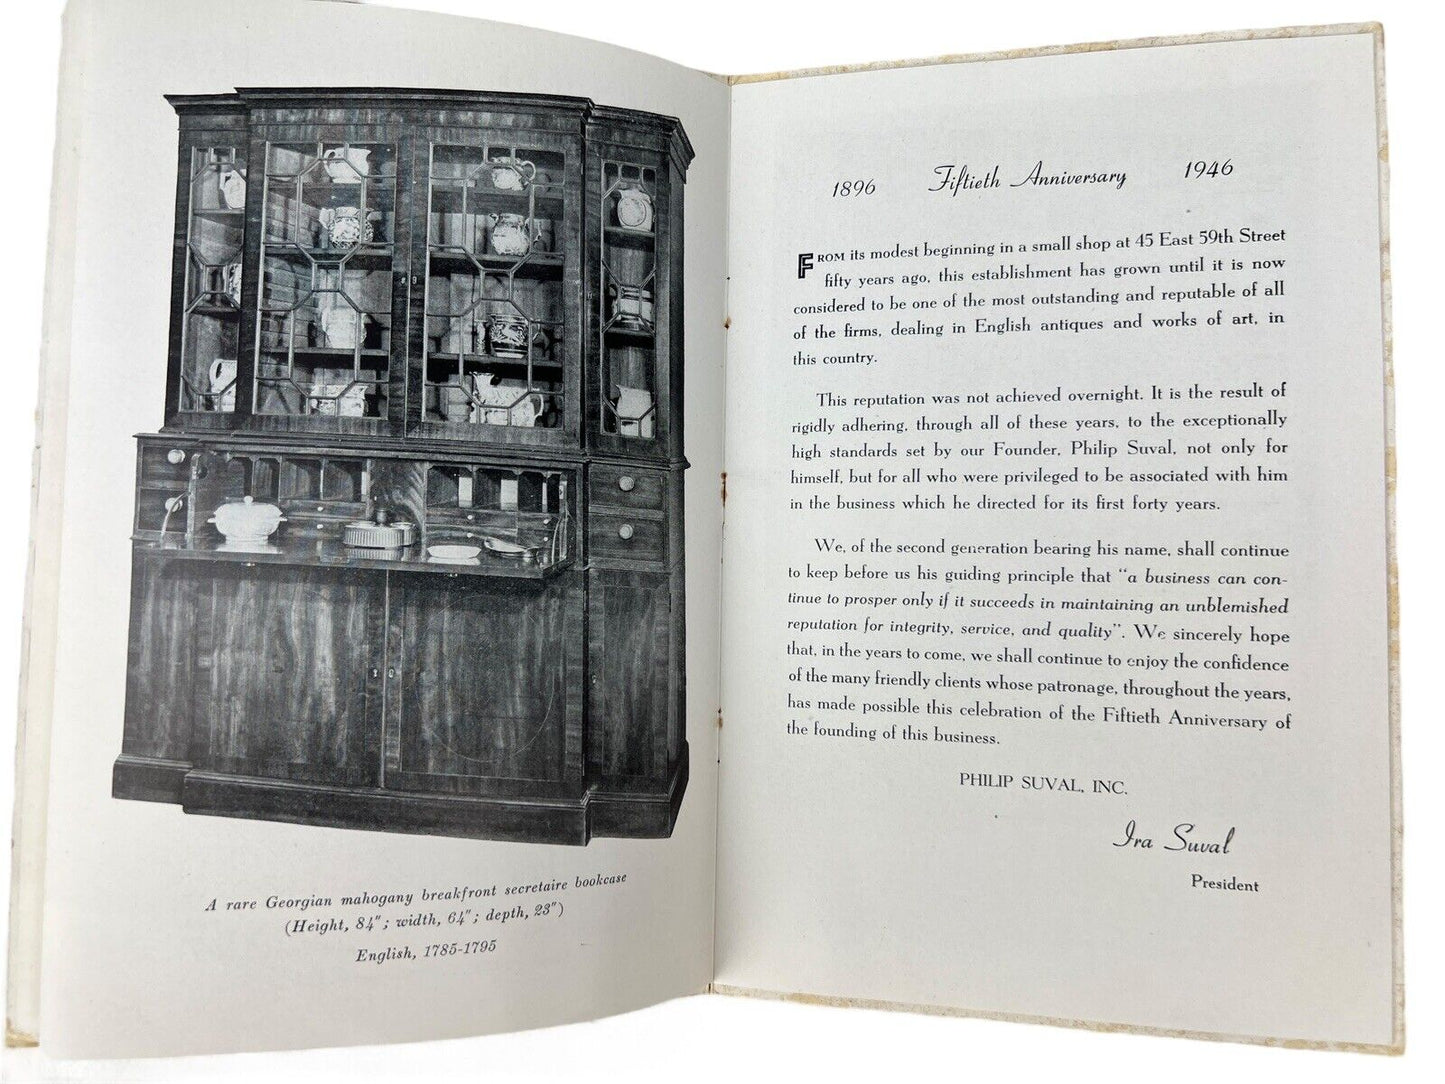 A rare Georgian mahogany breakfront secretaire bookcase
(Height, 84"; width, 64"; depth, 23")
English, 1785-1795
1896 Fiftieth Anniversary 1946
FROM its modest beginning in a small shop at 45 East 59th Street
fifty years ago, this establishment has grown until it is now
considered to be one of the most outstanding and reputable of all
of the firms, dealing in English antiques and works of art, in
this country.
This reputation was not achieved overnight. It is the result of
rigidly adhering, through all of these years, to the exceptionally
high standards set by our Founder, Philip Suval, not only for
himself, but for all who were privileged to be associated with him
in the business which he directed for its first forty years.
We, of the second generation bearing his name, shall continue
to keep before us his guiding principle that "a business can con-
tinue to prosper only if it succeeds in maintaining an unblemished
reputation for integrity, service, and quality". We sincerely hope
that, in the years to come, we shall continue to enjoy the confidence
of the many friendly clients whose patronage, throughout the years,
has made possible this celebration of the Fiftieth Anniversary of
the founding of this business.
PHILIP SUVAL, INC.
Ira Suval
President